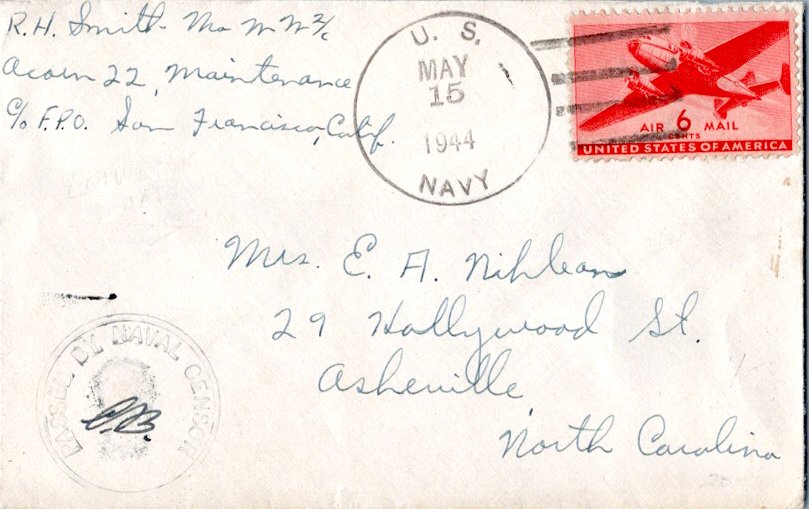 R. H. Smith - Mo M M 2/c
Acorn 22, Maintenance
c/o F.P.O. San Francisco, Calif.
U. S.
MAY
15
1944
NAVY
AIR 6 MAIL
CENTS
UNITED STATES OF AMERICA
Mrs. E. A. Nihlean
29 Hollywood St.
Asheville
North Carolina
PASSED BY NAVAL CENSOR